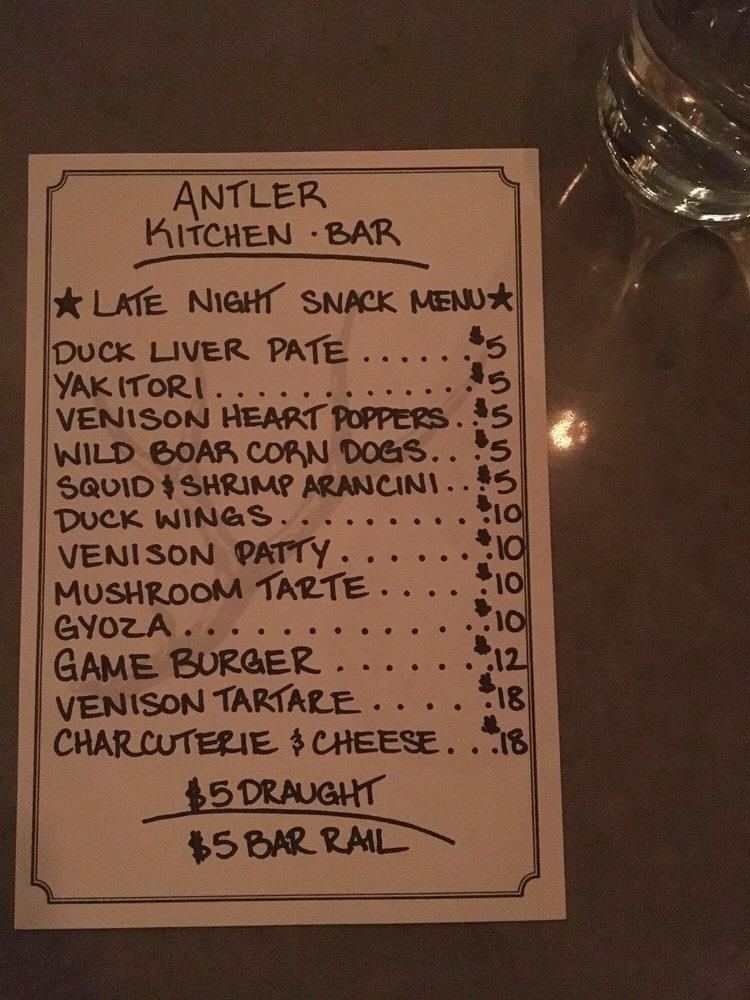 ANTLER
KITCHEN · BAR
★ LATE NIGHT SNACK MENU ★
DUCK LIVER PATE ...... $5
YAKITORI ............. $5
VENISON HEART POPPERS .. $5
WILD BOAR CORN DOGS ... $5
SQUID & SHRIMP ARANCINI ... $5
DUCK WINGS .......... $10
VENISON PATTY ....... $10
MUSHROOM TARTE ..... $10
GYOZA .............. $10
GAME BURGER ....... $12
VENISON TARTARE ..... $18
CHARCUTERIE & CHEESE ... $18
$5 DRAUGHT
$5 BAR RAIL